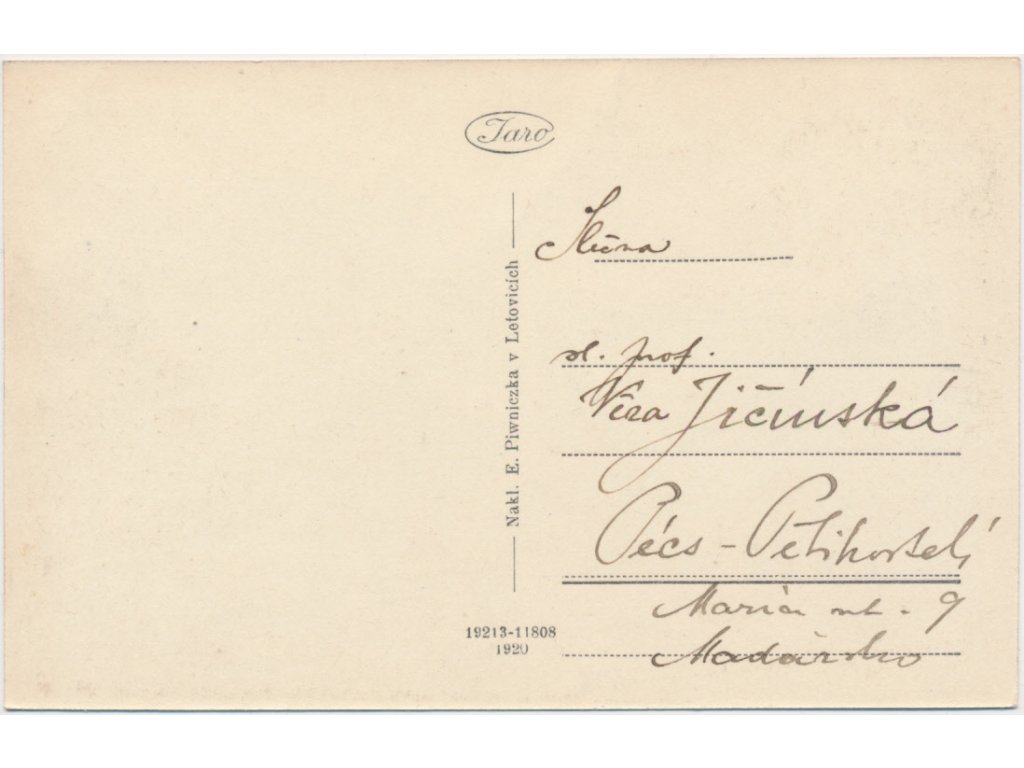 Jaro
Nakl. E. Piwniczka v Letovicích
19213-11808
1920
Slečna
sl. prof.
Věra Jičínská
Pécs - Pětikostelí
Mária ut. 9
Maďarsko